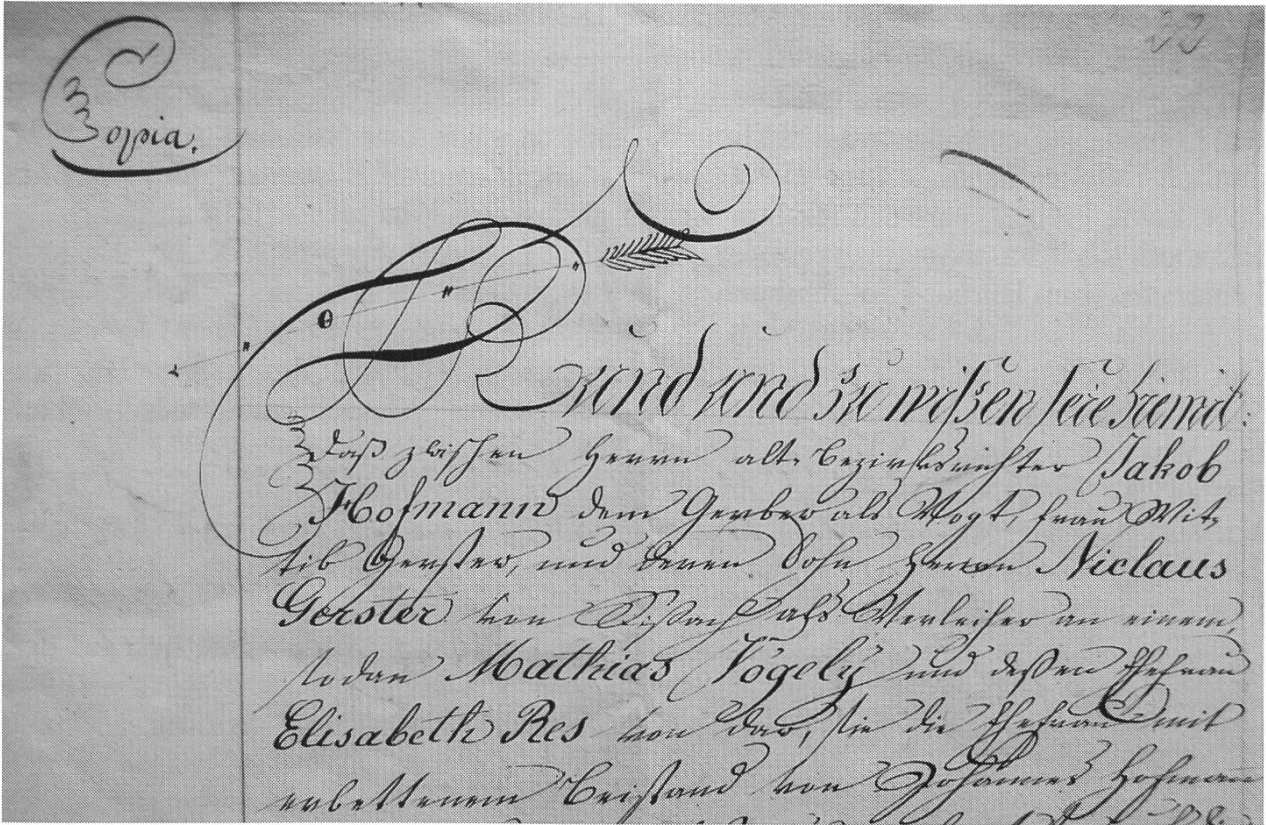 Copia.
Kund und zu wißen seie hiemit:
Daß zwischen Herrn alt. Bezirksrichter Jakob
Hofmann dem Gerber als Vogt, Frau Wit-
tib Gerster, und deren Sohn Herrn Niclaus
Gerster von Sißach als Verleiher an einem,
sodan Mathias Vögely und deßen Ehefrau
Elisabeth Res von dar, sie die Ehefrau mit
erbettenem Beistand von Johannes Hofmann